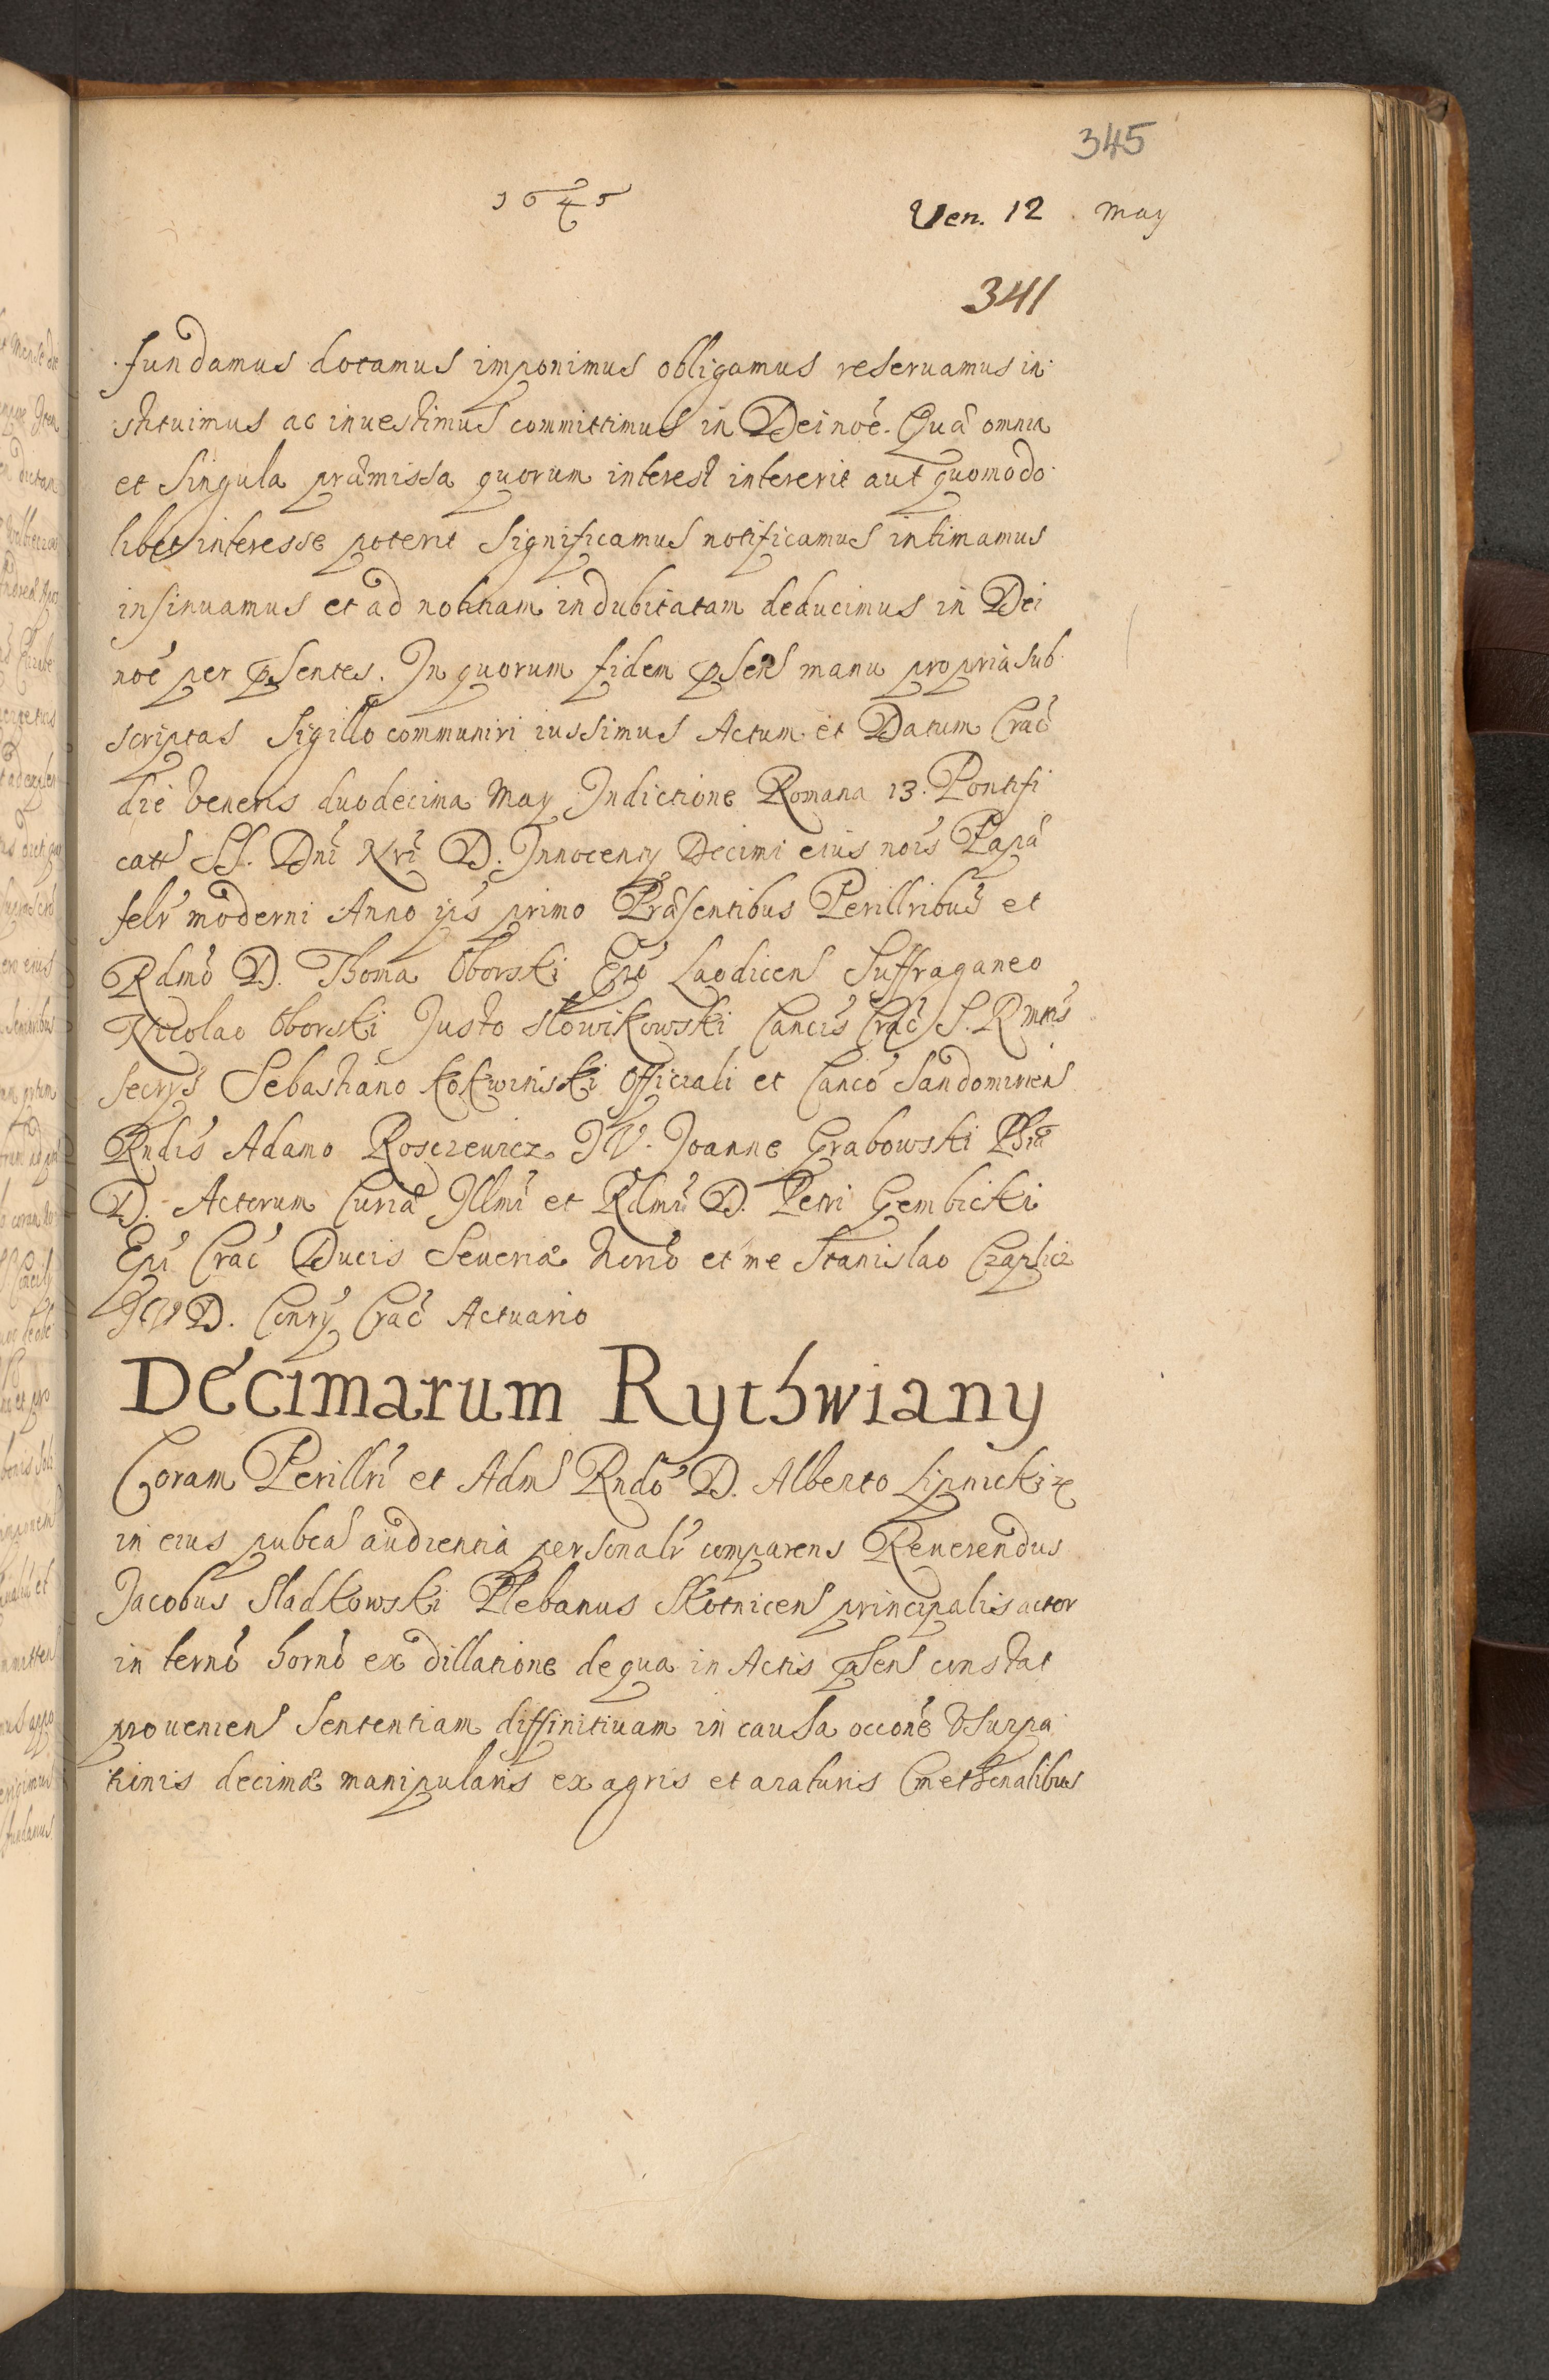 345
1645
Ven. 12 May
341
fundamus dotamus imponimus obligamus reseruamus in
stituimus ac inuestimus committimus in Dei noe. Quae omnia
et singula praemissa quorum interest intererit aut quomodo
libet interesse poterit significamus notificamus intimamus
insinuamus et ad notitiam indubitatam deducimus in Dei
noe per psentes. In quorum fidem psens manu propria sub
scriptas sigillo communiri iussimus Actum et Datum Crac
die Veneris duodecima May Indictione Romana 13. Pontifi
catt SS. Dni Nri D. Innocenty Decimi eius nois Papae
felr moderni Anno ips primo Praesentibus Perillribus et
Rdmo D. Thoma Oborski Epo Laodicens Suffraganeo
Nicolao Oborski Justo Słowikowski Cancis Crac S. R mtis
secrys Sebastiano Kokwinski Officiali et Canco Sandomiriens
Rndis Adamo Roszewicz J V. Joanne Grabowski Phiae
D. Actorum Curiae Illmi et Rdmi D. Petri Gembicki
Epi Crac Ducis Seueriae Norio et me Stanislao Czaplicz
J V D. Conry Crac Actuario
Decimarum Rythwiany
Coram Perillri et Adm Rndo D. Alberto Lipnicki &
in eius pubca audientia personalr comparens Reuerendus
Jacobus Sladkowski Plebanus Skotnicens principalis actor
in termo horno ex dillatione de qua in Actis psens constat
proueniens Sententiam diffinitiuam in causa occone Vsurpa
tionis decimae manipularis ex agris et araturis Cmethonalibus